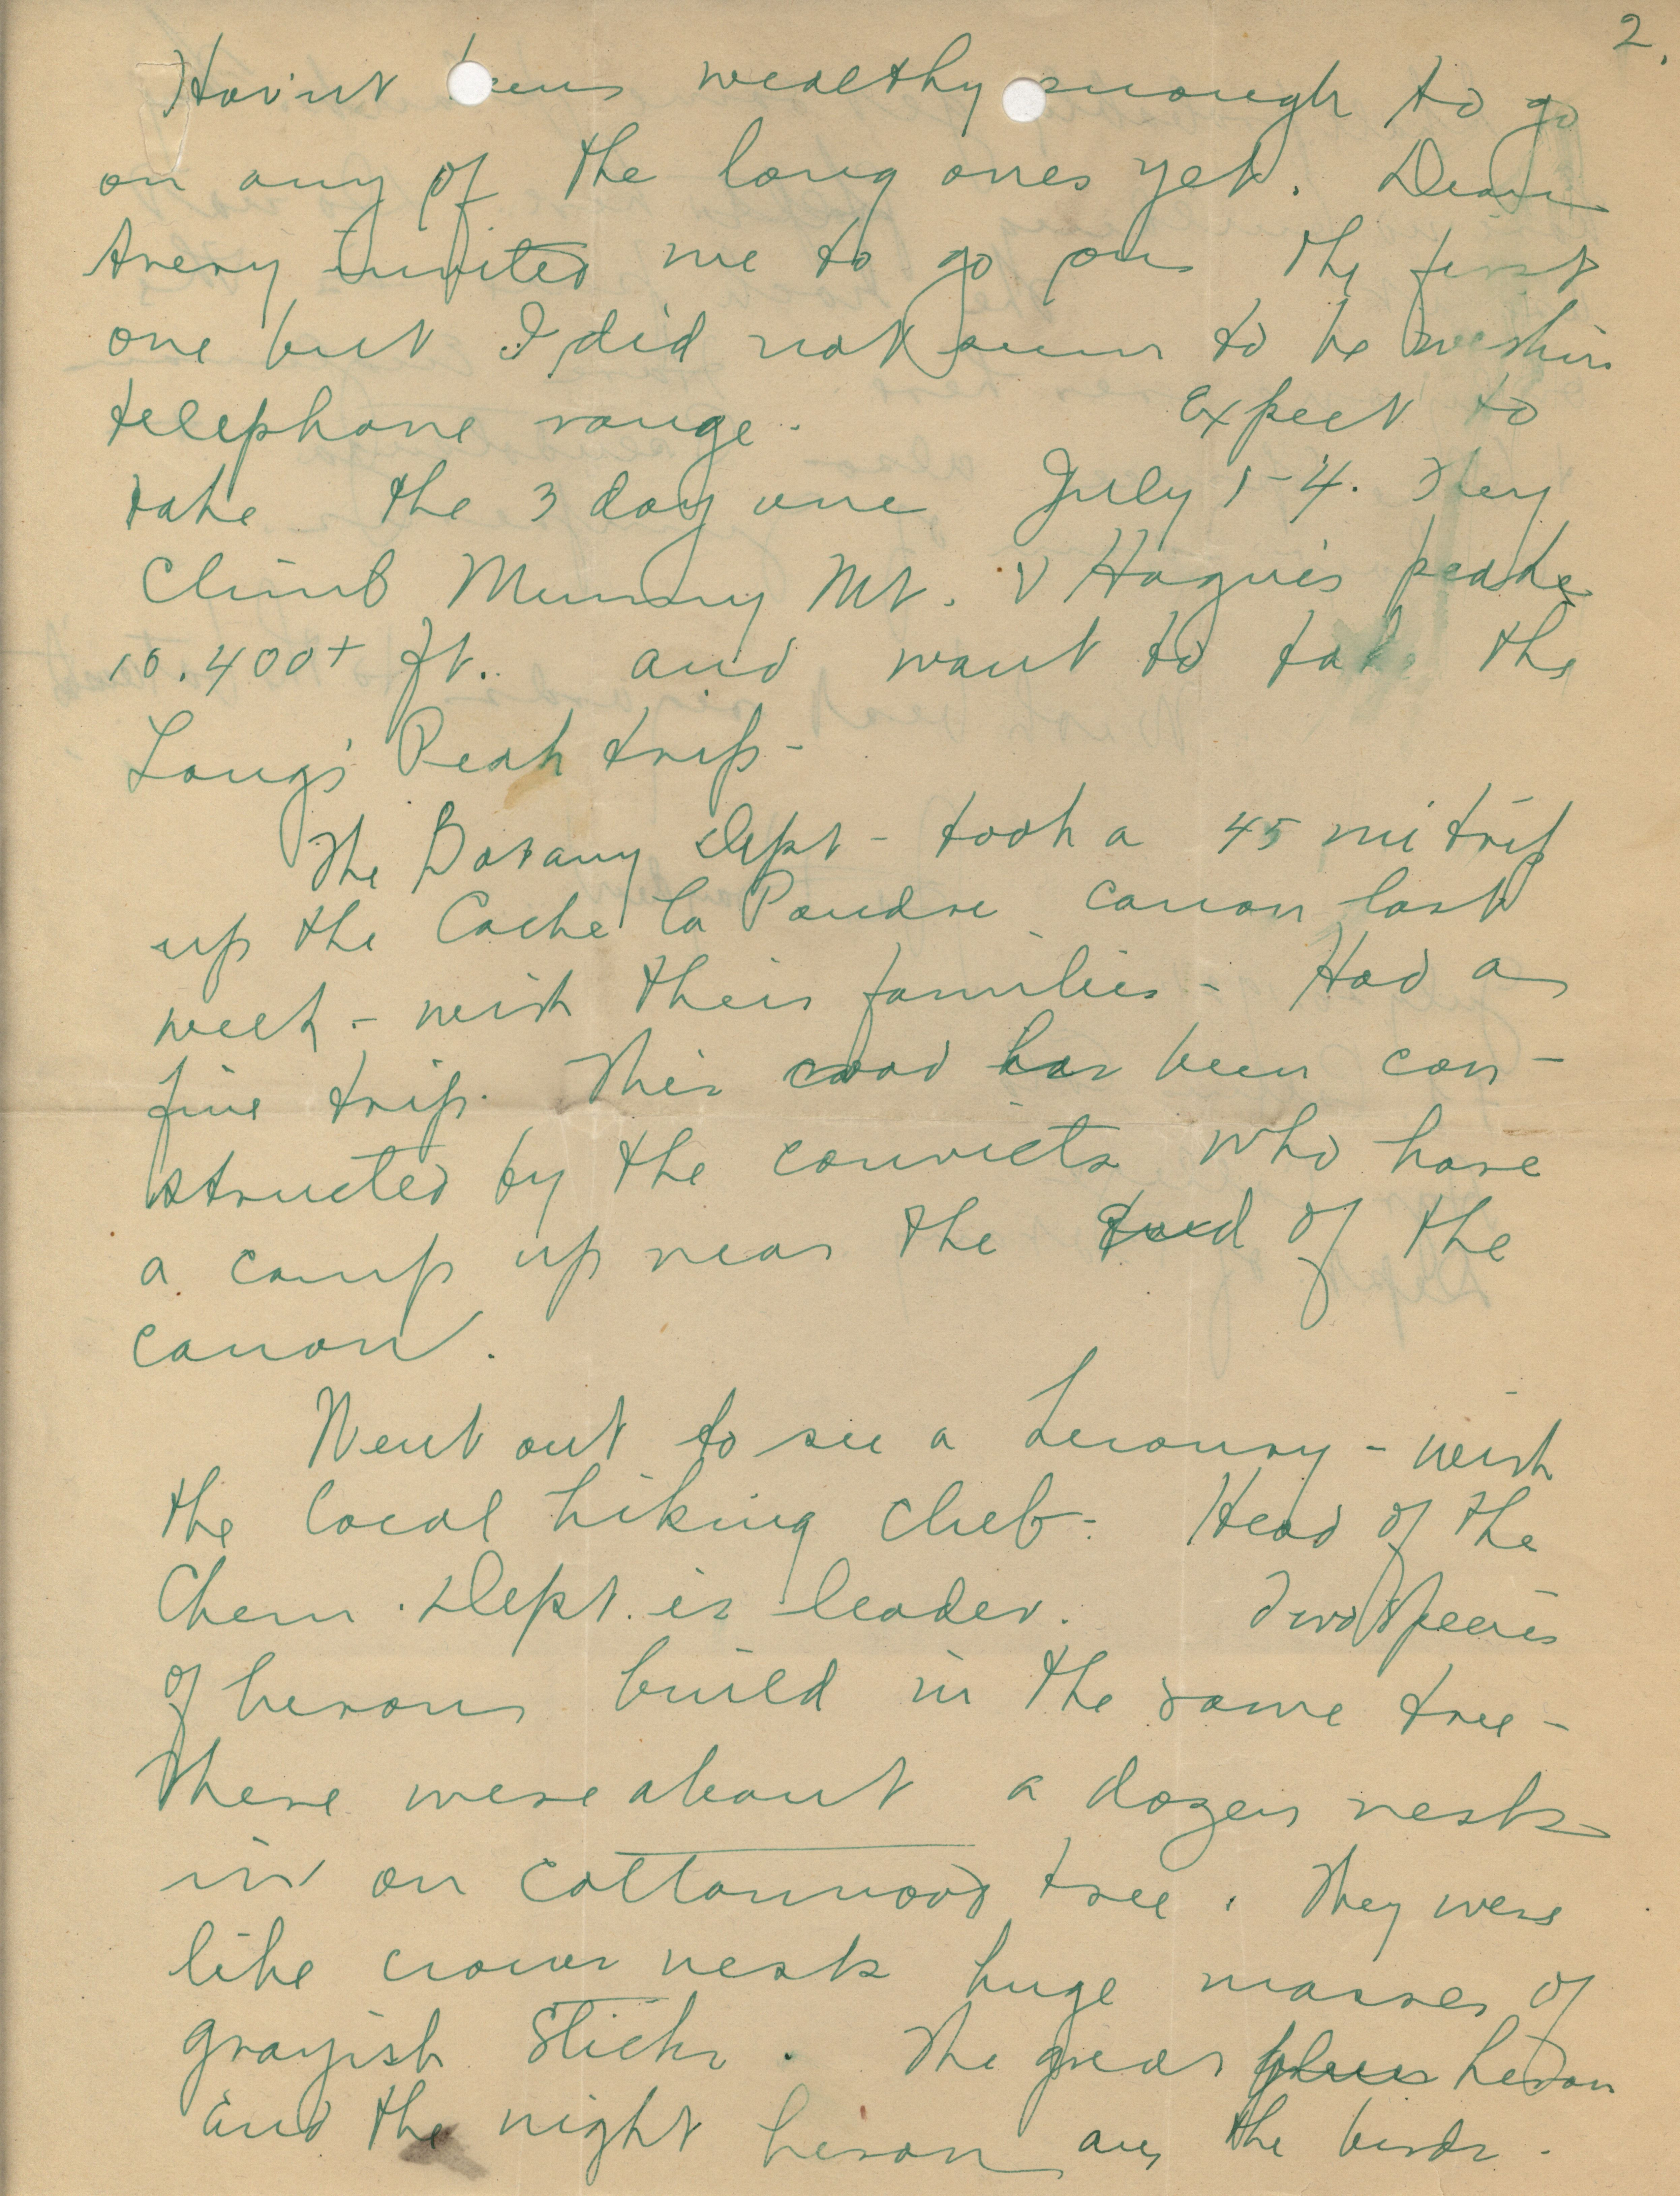 2.
Hav'nt been wealthy enough to go
on any of the long ones yet. Dean
Avery invited me to go on the first
one but I did not seem to be within
telephone range. Expect to
take the 3 day one July 1-4. They
climb Mummy Mt. & Hague's peaks
10.400+ ft. and want to take the
Long's Peak trip -
The Botany Dept - took a 45 mi trip
up the Cache la Poudre canon last
week - with their families - Had a
fine trip. This road has been con-
structed by the convicts who have
a camp up near the end of the
canon.
Went out to see a heronry - with
the local hiking club - Head of the
Chem. Dept. is leader. Two species
of herons build in the same tree -
There were about a dozen nests
in on cottonwood tree. They were
like crows nests huge masses of
grayish sticks. The great blue heron
and the night heron are the birds.